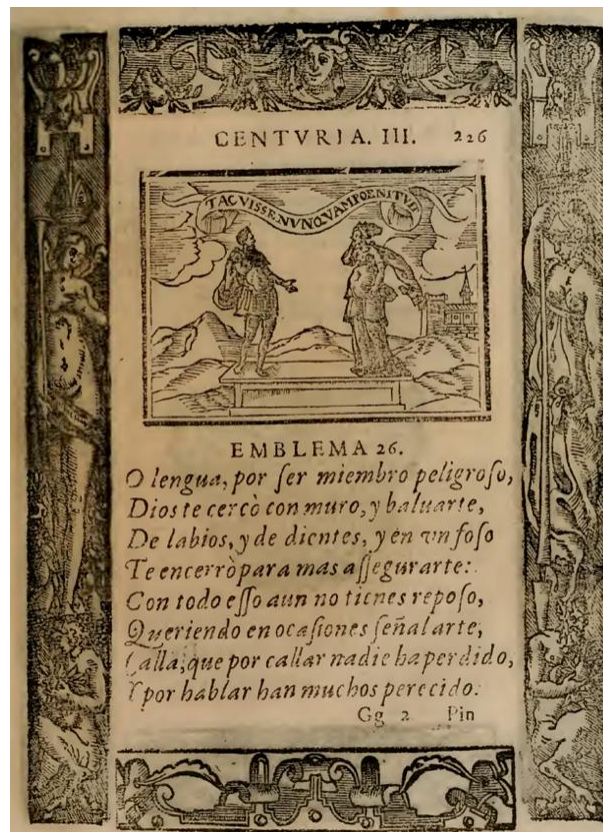 CENTVRIA. III. 226
TACVISSE NVNQVAM POENITVIT
EMBLEMA 26.
O lengua, por ſer miembro peligroſo,
Dios te cercò con muro, y baluarte,
De labios, y de dientes, y en vn foſo
Te encerrò para mas aſſegurarte:
Con todo eſſo aun no tienes repoſo,
Queriendo en ocaſiones ſeñalarte,
Calla, que por callar nadie ha perdido,
Y por hablar han muchos perecido.
Gg 2 Pin